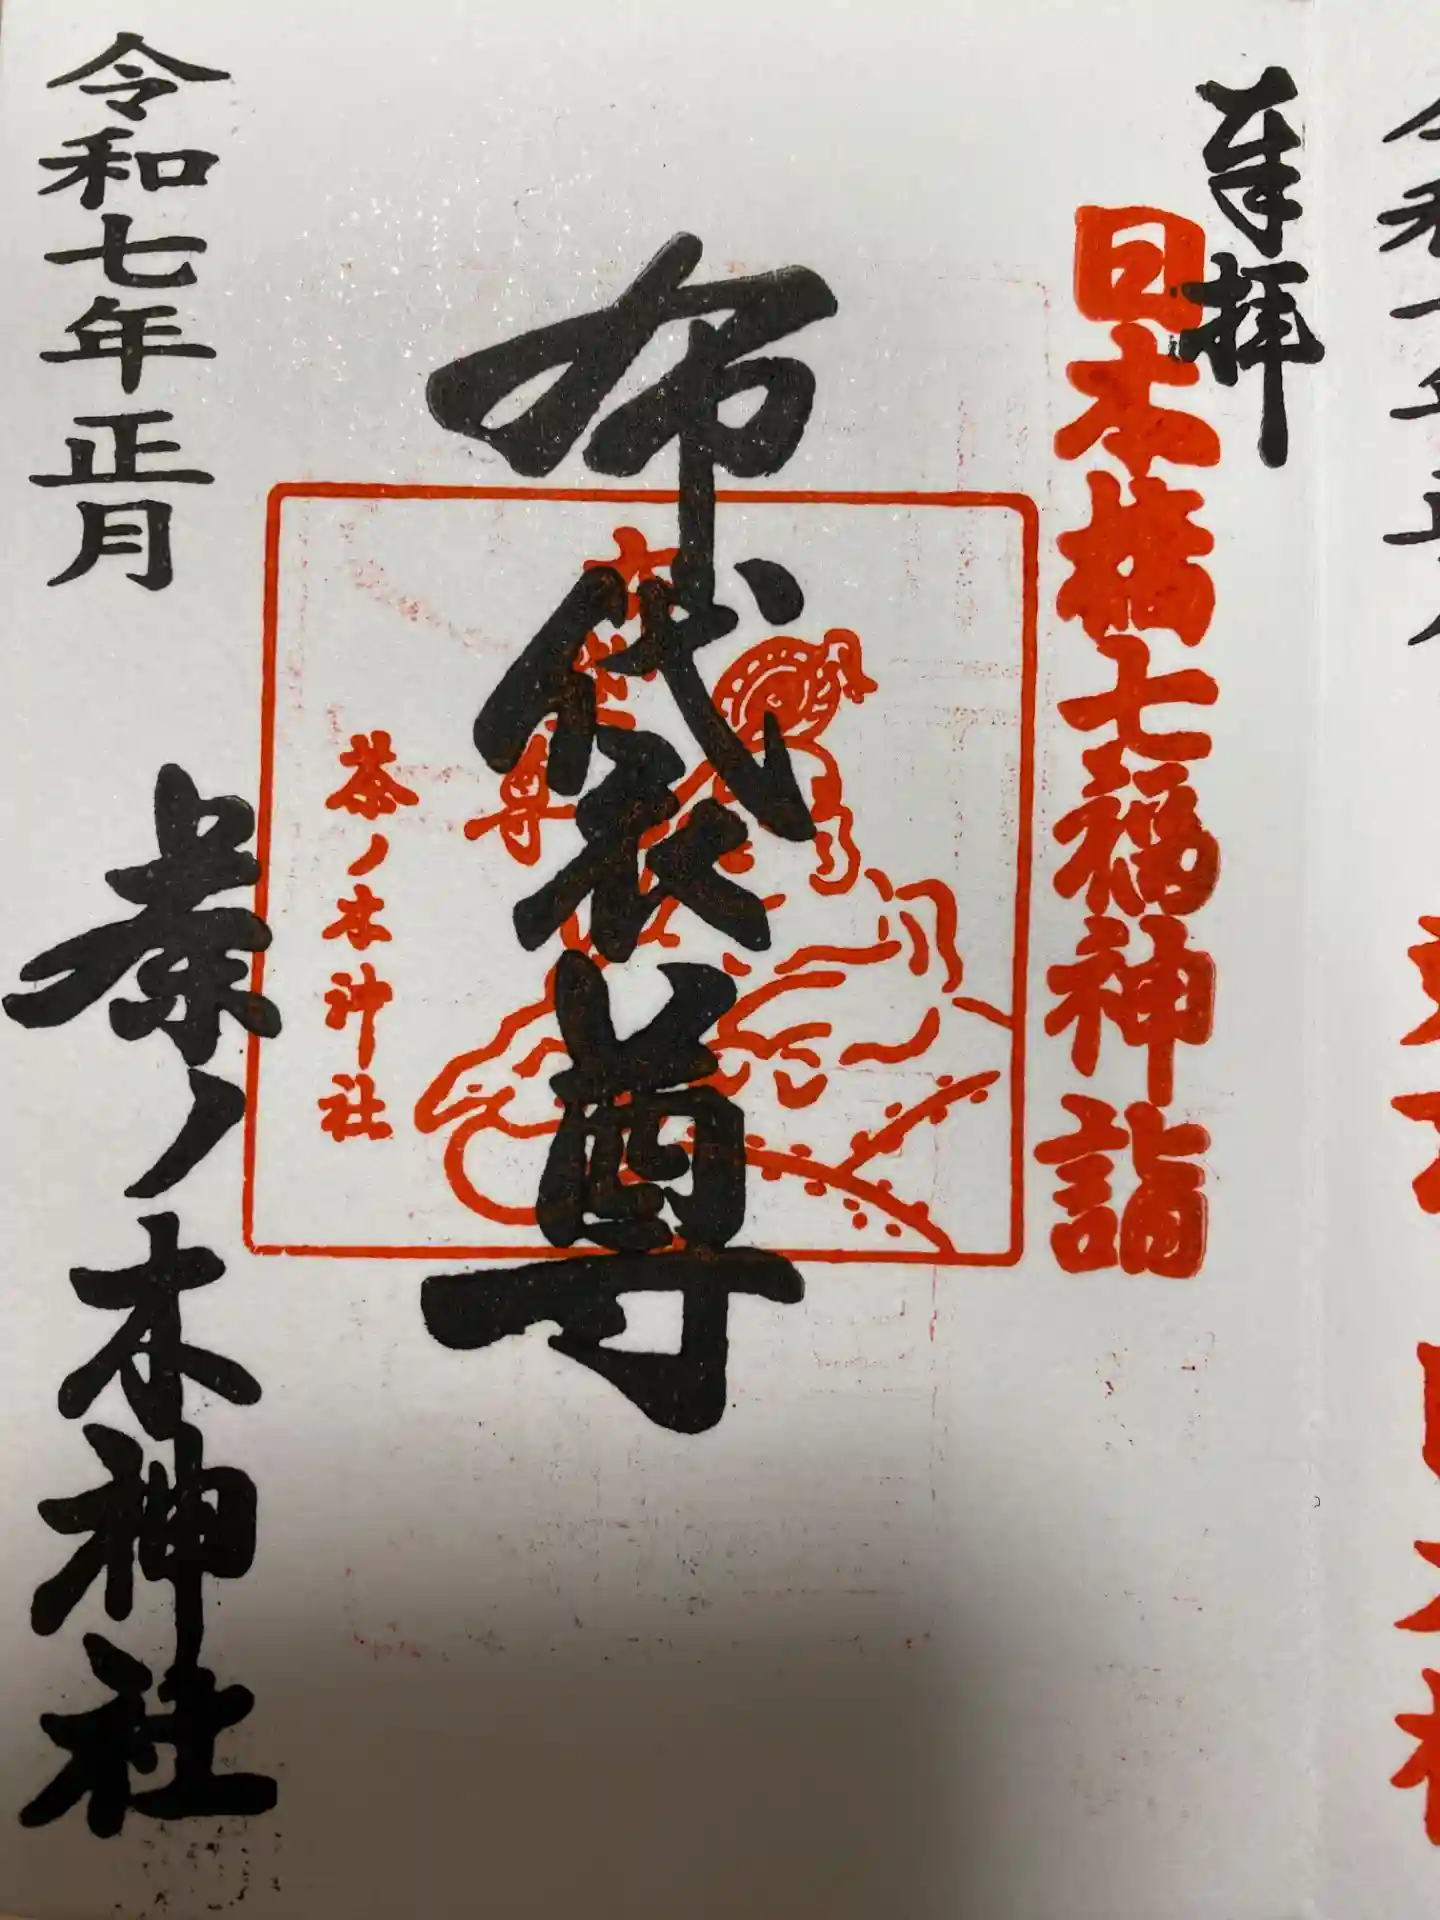 奉拝
日本橋七福神詣
布袋尊
布袋尊
茶ノ木神社
令和七年正月
茶ノ木神社